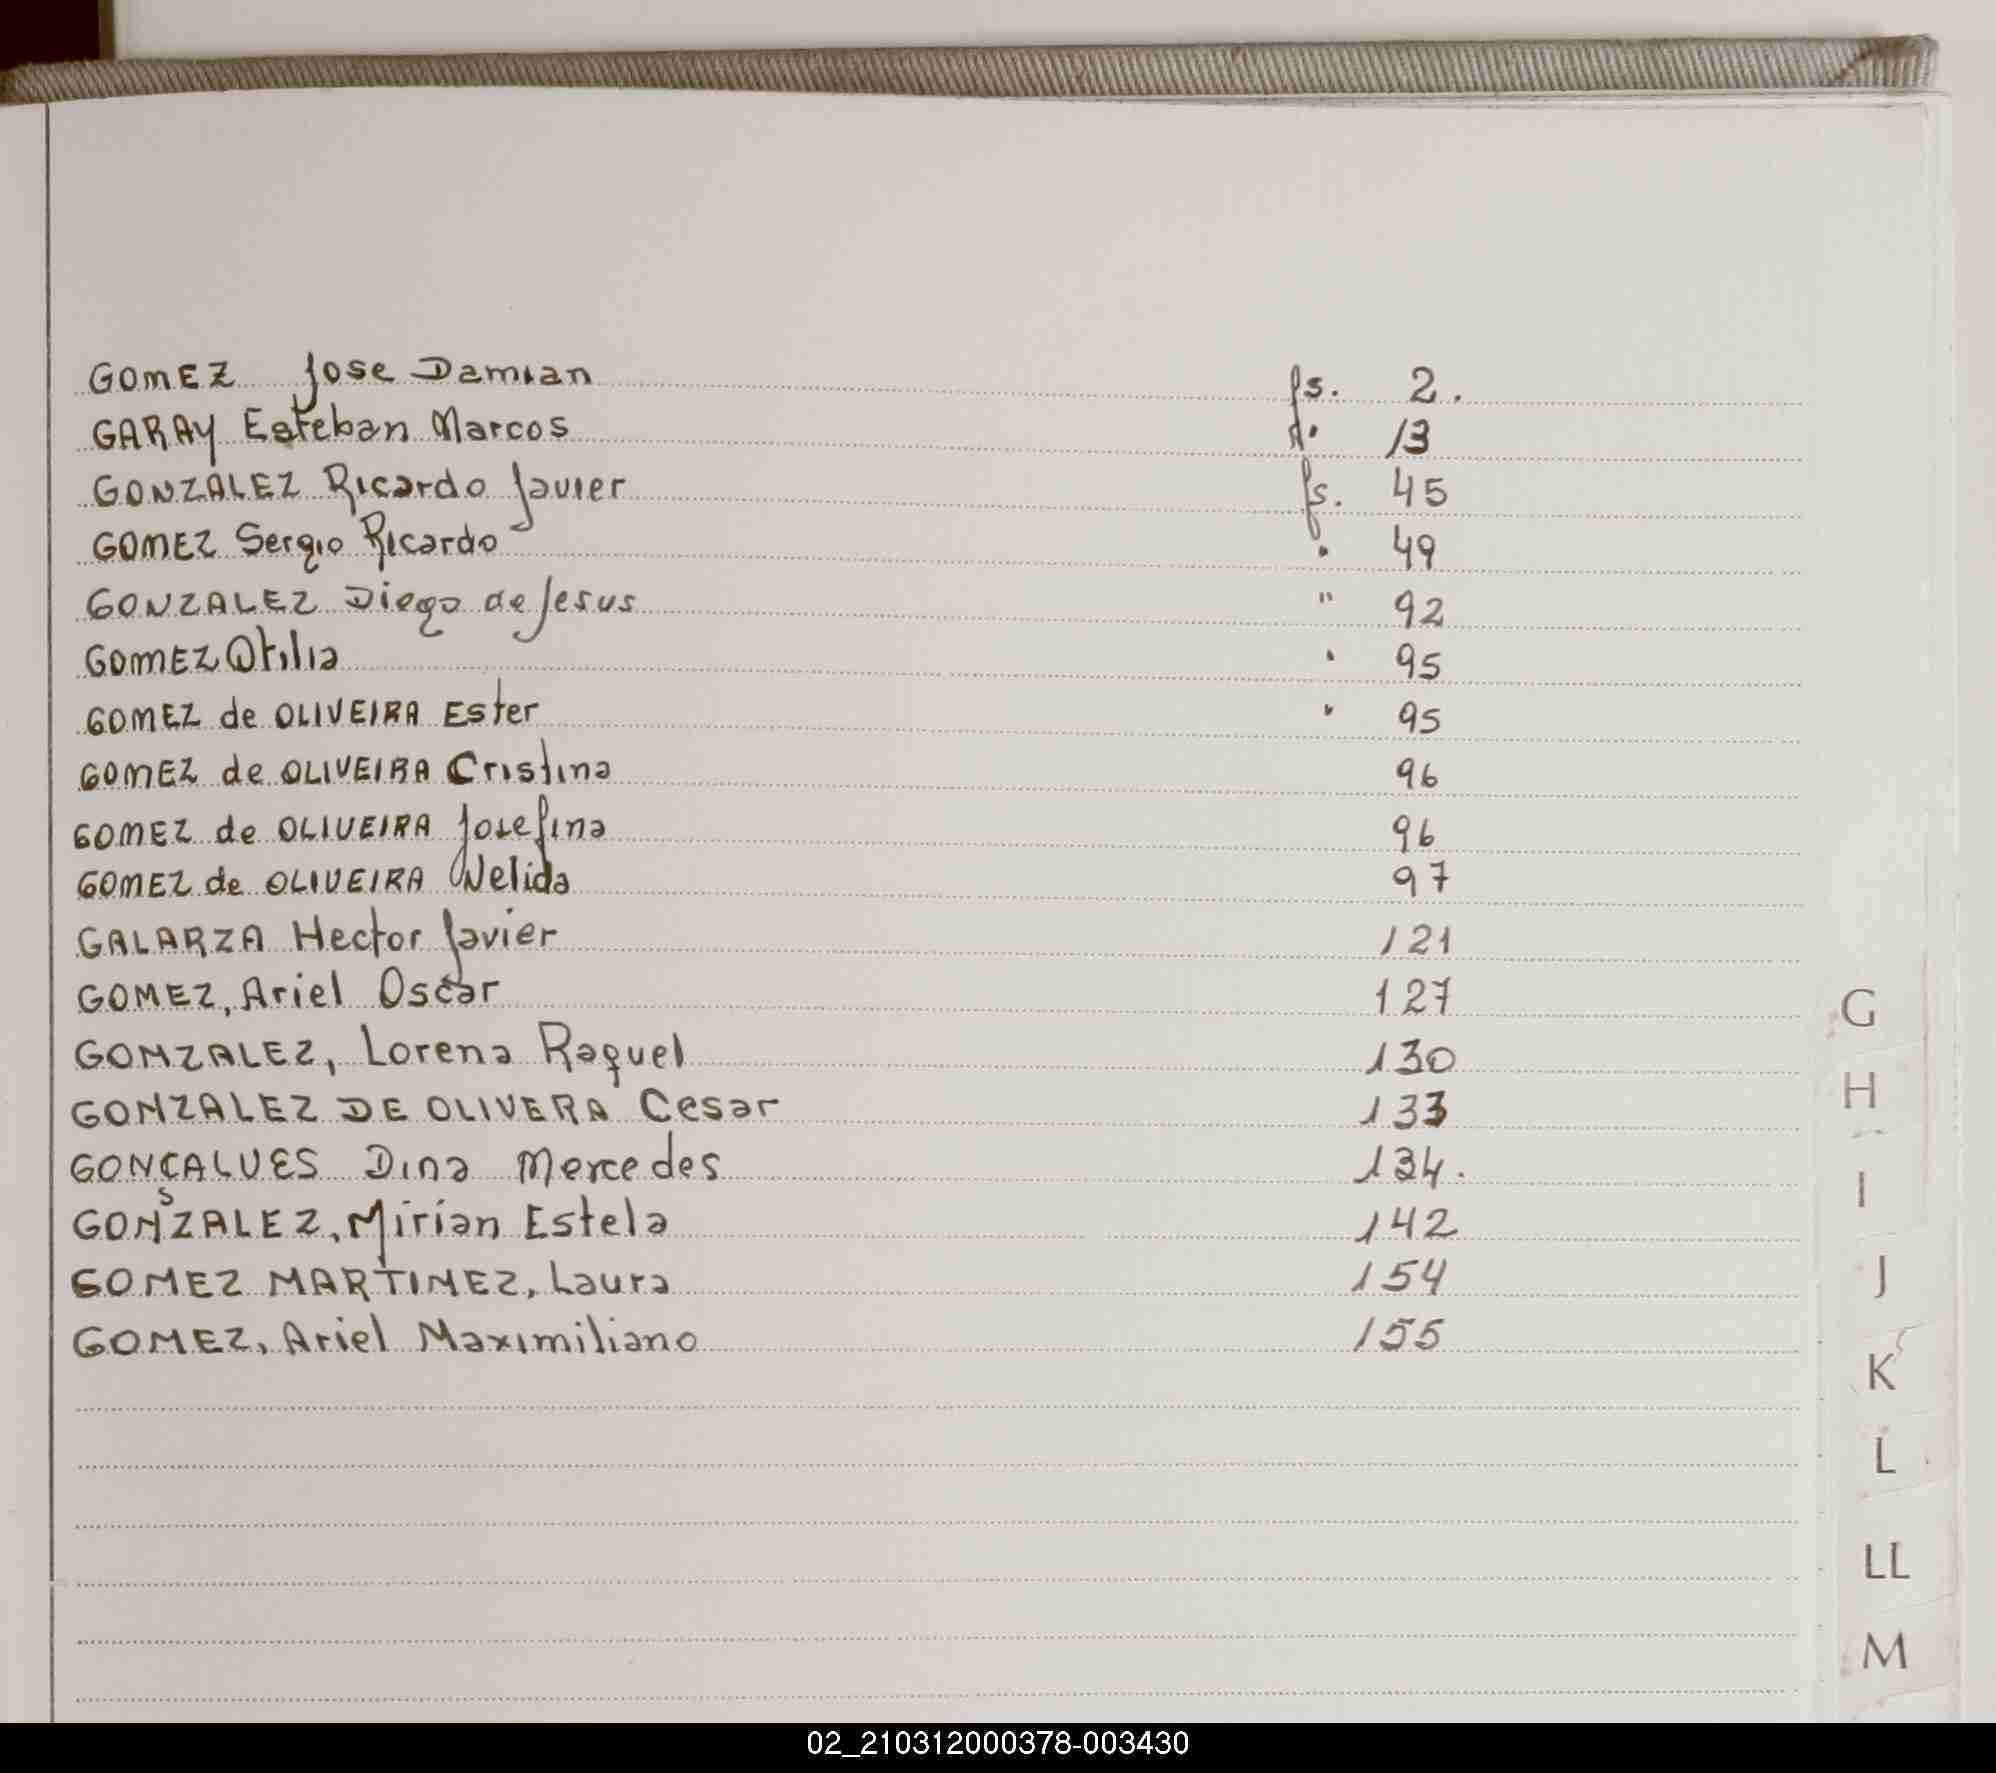 GOMEZ Jose Damian fs. 2.
GARAY Esteban Marcos 13
GONZALEZ Ricardo Javier fs. 45
GOMEZ Sergio Ricardo 49
GONZALEZ Diego de Jesus " 92
GOMEZ Otilia 95
GOMEZ de OLIVEIRA Ester 95
GOMEZ de OLIVEIRA Cristina 96
GOMEZ de OLIVEIRA Josefina 96
GOMEZ de OLIVEIRA Nelida 97
GALARZA Hector Javier 121
GOMEZ, Ariel Oscar 127
GONZALEZ, Lorena Raquel 130
GONZALEZ DE OLIVERA Cesar 133
GONÇALVES Dina Mercedes 134.
GONZALEZ, Mirian Estela 142
GOMEZ MARTINEZ, Laura 154
GOMEZ, Ariel Maximiliano 155
G
H
I
J
K
L
LL
M
02_210312000378-003430